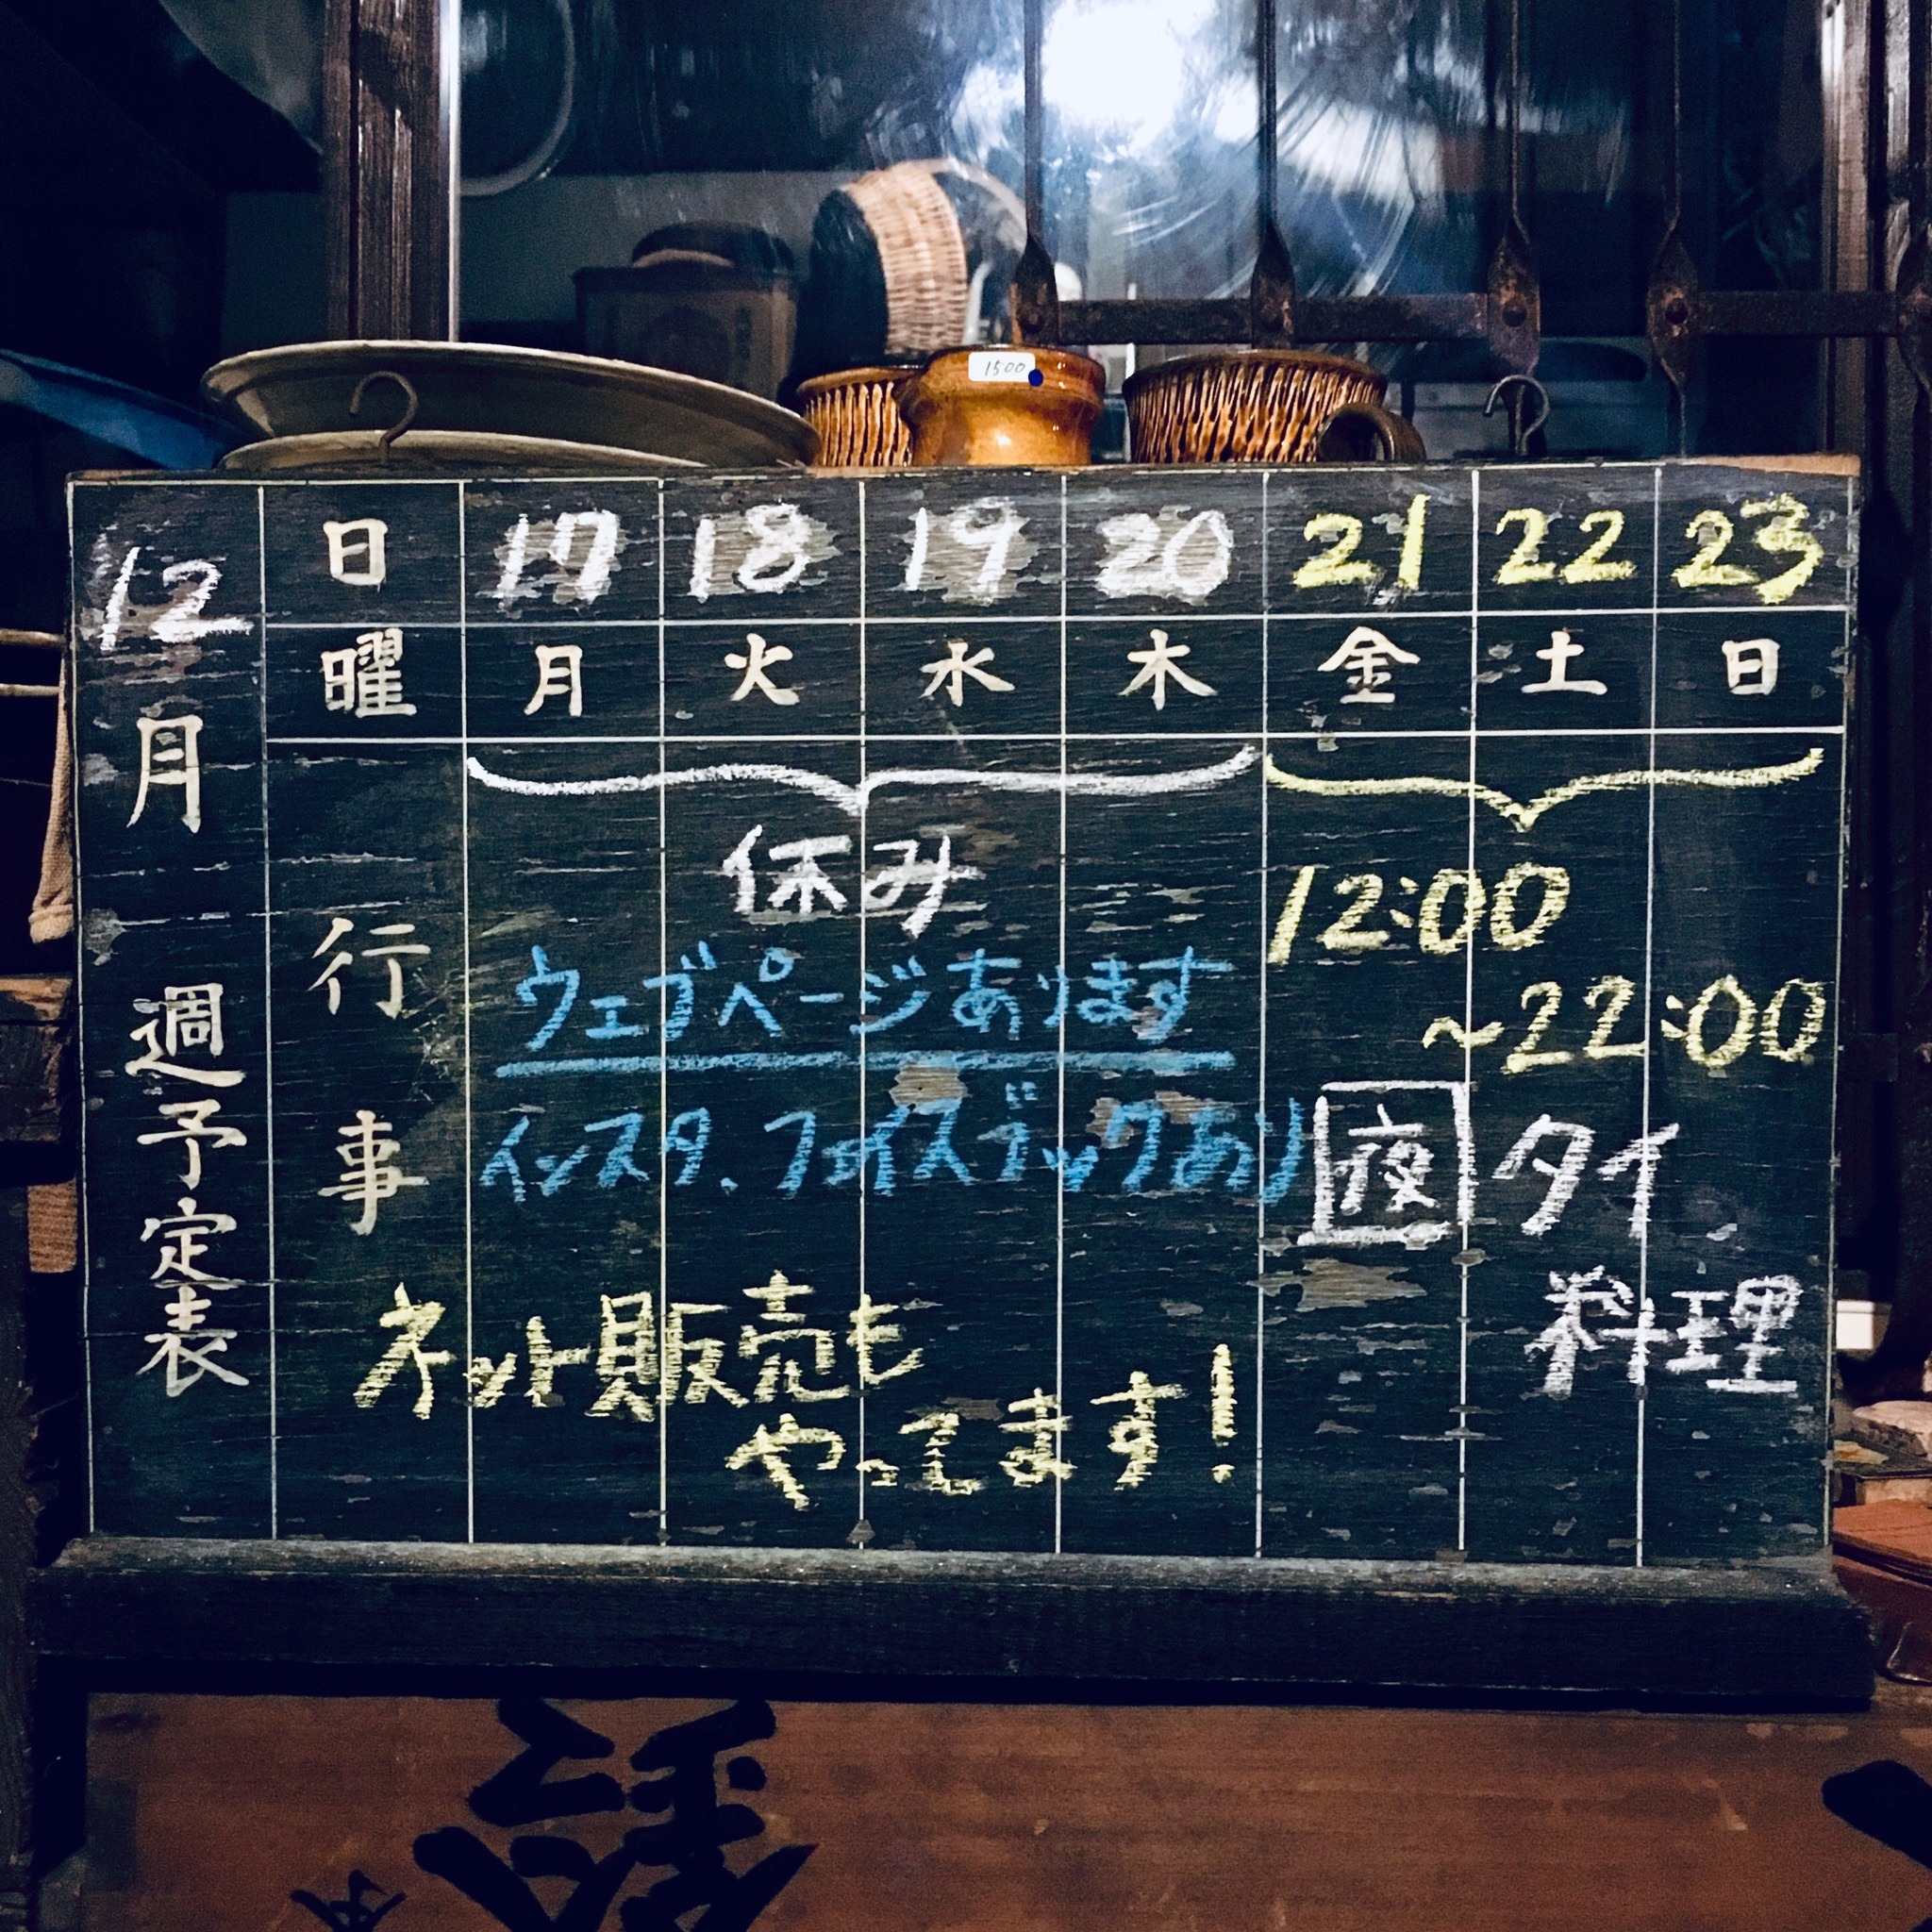 1500
12月 週予定表
日 17 18 19 20 21 22 23
曜 月 火 水 木 金 土 日
行事
休み
ウェブページあります
インスタ、フェイスブックあり
ネット販売も
やってます!
12:00
~22:00
夜 タイ
料理